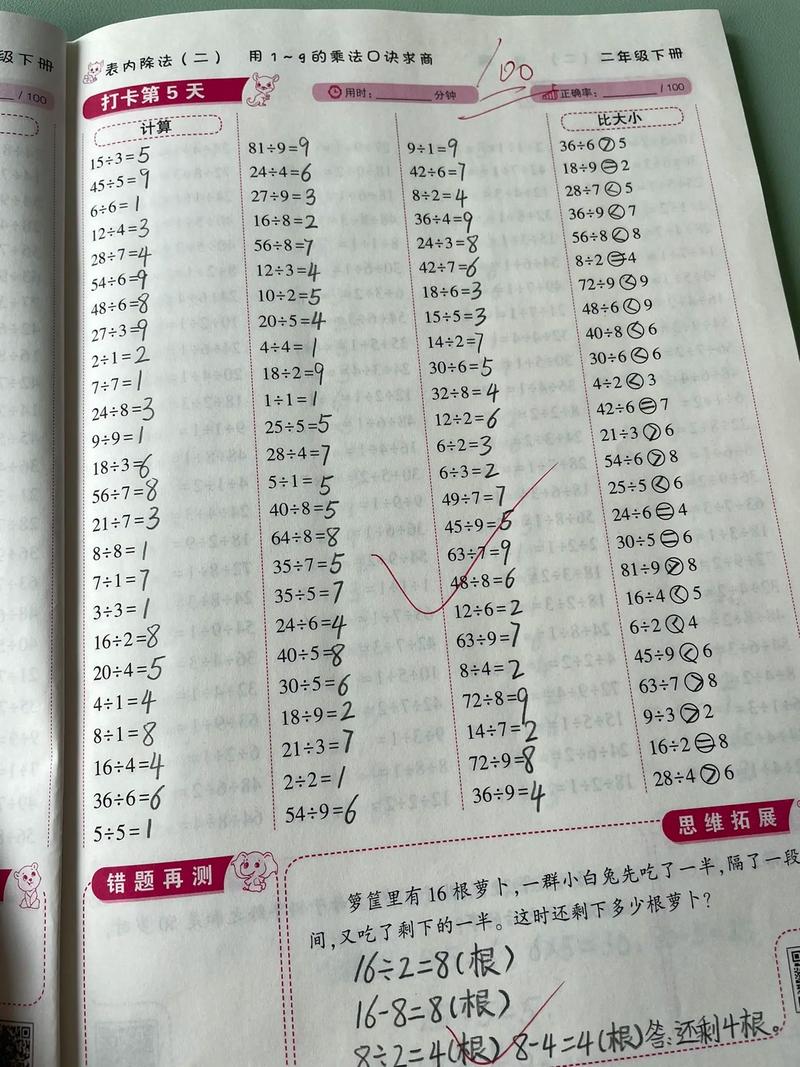 级下册
/ 100
表内除法（二） 用1～9的乘法口诀求商
100
二年级下册
打卡第5天
用时：______分钟
正确率：______ / 100
计算
15÷3=5
45÷5=9
6÷6=1
12÷4=3
28÷7=4
54÷6=9
48÷6=8
27÷3=9
2÷1=2
7÷7=1
24÷8=3
9÷9=1
18÷3=6
56÷7=8
21÷7=3
8÷8=1
7÷1=7
3÷3=1
16÷2=8
20÷4=5
4÷1=4
8÷1=8
16÷4=4
36÷6=6
5÷5=1
81÷9=9
24÷4=6
27÷9=3
16÷8=2
56÷8=7
12÷3=4
10÷2=5
20÷5=4
4÷4=1
18÷2=9
1÷1=1
25÷5=5
28÷4=7
5÷1=5
40÷8=5
64÷8=8
35÷7=5
35÷5=7
24÷6=4
40÷5=8
30÷5=6
18÷9=2
21÷3=7
2÷2=1
54÷9=6
9÷1=9
42÷6=7
8÷2=4
36÷4=9
24÷3=8
42÷7=6
18÷6=3
15÷5=3
14÷2=7
30÷6=5
32÷8=4
12÷2=6
6÷2=3
6÷3=2
49÷7=7
45÷9=5
63÷7=9
48÷8=6
12÷6=2
63÷9=7
8÷4=2
72÷8=9
14÷7=2
72÷9=8
36÷9=4
比大小
36÷6>5
18÷9=2
28÷7<5
36÷9<7
56÷8<8
8÷2=4
72÷9<9
48÷6<9
40÷8<6
30÷6<6
4÷2<3
42÷6=7
21÷3>6
54÷6>8
25÷5<6
24÷6=4
30÷5=6
81÷9>8
16÷4<5
6÷2<4
45÷9<6
63÷7>8
9÷3>2
16÷2=8
28÷4>6
错题再测
思维拓展
箩筐里有16根萝卜，一群小白兔先吃了一半，隔了一段
间，又吃了剩下的一半。这时还剩下多少根萝卜？
16÷2=8(根)
16-8=8(根)
8÷2=4(根) 8-4=4(根) 答：还剩4根。